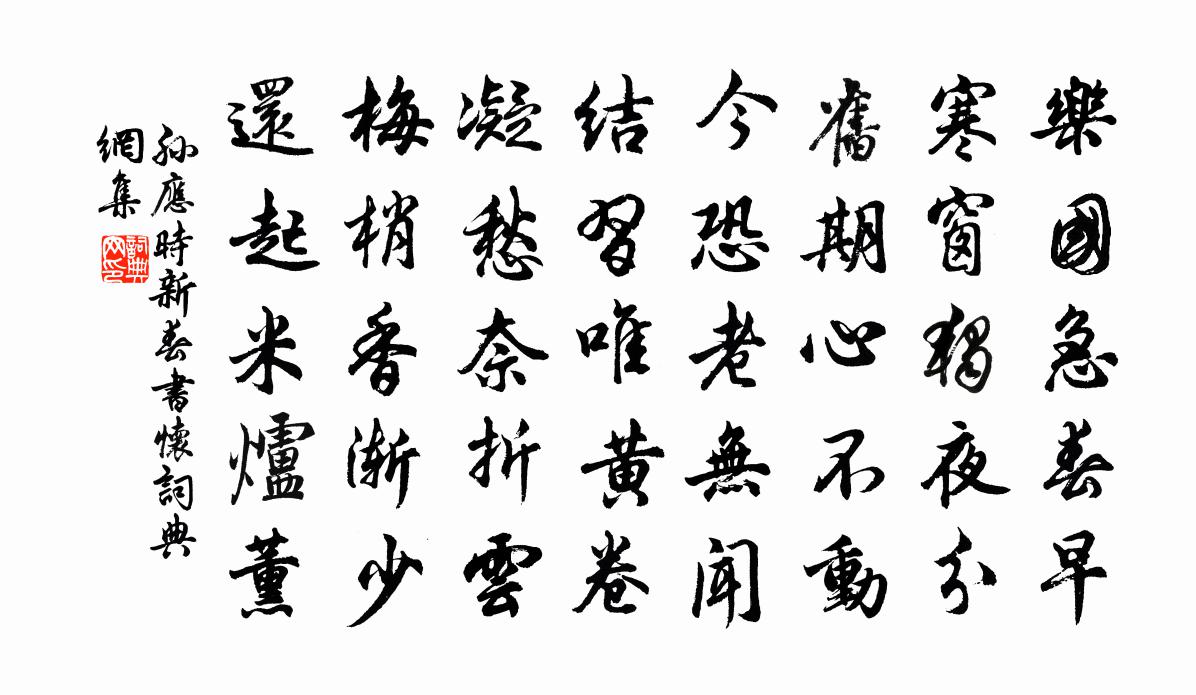 樂國急春早
寒窗獨夜分
舊期心不動
今恐老無聞
結習唯黃卷
凝愁奈折雲
梅梢香漸少
還起米爐薰
孫應時新春書懷詞典
網集
詞典网印